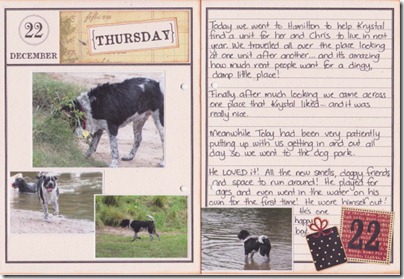 22
DECEMBER
{THURSDAY}
Today we went to Hamilton to help Krystal
find a unit for her and Chris to live in next
year. We travelled all over the place looking
at one unit after another... and it's amazing
how much rent people want for a dingy,
damp little place!
Finally, after much looking we came across
one place that Krystal liked... and it was
really nice.
Meanwhile Toby had been very patiently
putting up with us getting in and out all
day so we went to the dog park.
He LOVED it! All the new smells, doggy friends
and space to run around! He played for
ages and even went in the water on his
own for the first time! He wore himself out!
He's one
happy
22